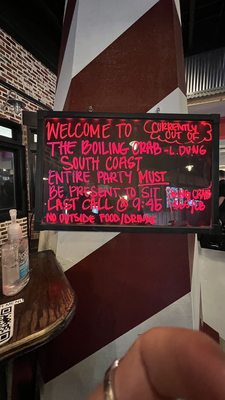 WELCOME TO
THE BOILING CRAB
SOUTH COAST
ENTIRE PARTY MUST
BE PRESENT TO SIT
LAST CALL @ 9:45
NO OUTSIDE FOOD/DRINKS
CURRENTLY
OUT OF
- L. DUNG